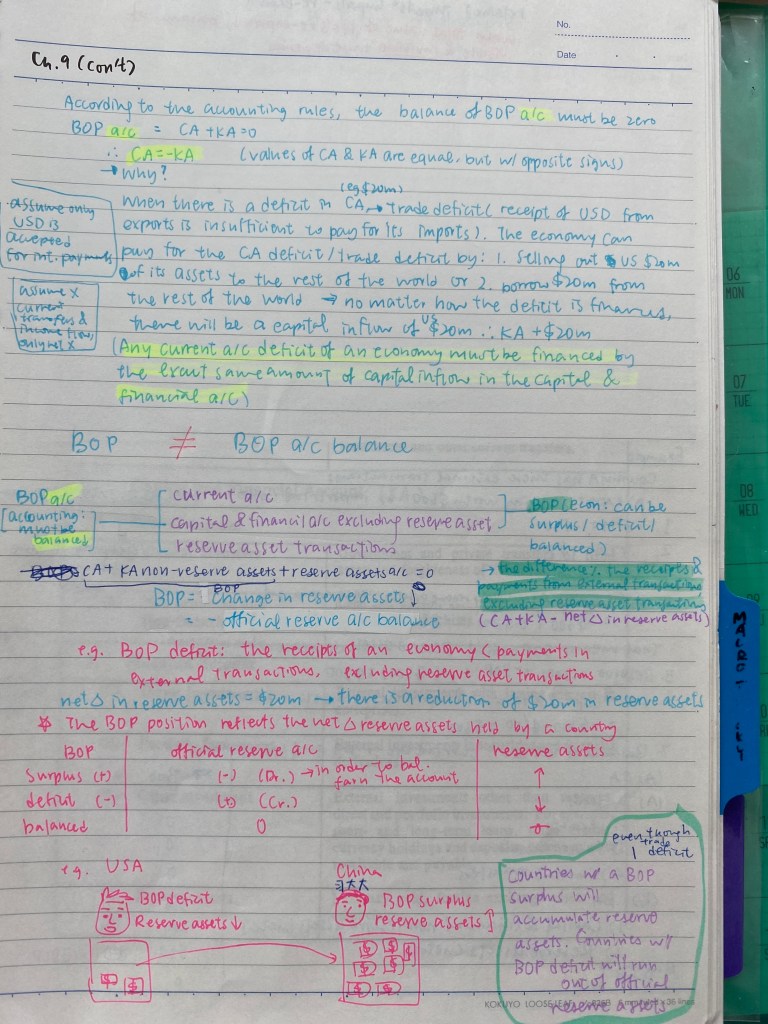 No.
Date
Ch.9 (con't)
According to the accounting rules, the balance of BOP a/c must be zero
BOP a/c = CA + KA = 0
∴ CA = -KA (values of CA & KA are equal, but w/ opposite signs)
→ Why?
(eg $20m)
When there is a deficit in CA → trade deficit (receipt of USD from
exports is insufficient to pay for its imports). The economy can
pay for the CA deficit / trade deficit by: 1. Selling out US $20m
of its assets to the rest of the world or 2. borrow $20m from
the rest of the world → no matter how the deficit is finances,
there will be a capital inflow of US$20m ∴ KA + $20m
(Any current a/c deficit of an economy must be financed by
the exact same amount of capital inflow in the capital &
financial a/c)
assume only
USD is
accepted
for int. payments
assume x
current
transfers &
income flow,
only net x
BOP ≠ BOP a/c balance
BOP a/c
[accounting:
must be
balanced]
current a/c
capital & financial a/c excluding reserve asset
reserve asset transactions
BOP (Econ: can be
surplus / deficit /
balanced)
CA + KA non-reserve assets + reserve assets a/c = 0
BOP
BOP = change in reserve assets
= - official reserve a/c balance
→ the difference % the receipts &
payments from external transactions
excluding reserve asset transactions
(CA + KA - net △ in reserve assets)
e.g. BOP deficit: the receipts of an economy < payments in
external transactions, excluding reserve asset transactions
net △ in reserve assets = $20m → there is a reduction of $20m in reserve assets
☆ The BOP position reflects the net △ reserve assets held by a country
BOP official reserve a/c reserve assets
surplus (+) (-) (Dr.) → in order to bal. ↑
the account
deficit (-) (+) (Cr.) ↓
balanced 0
e.g. USA
BOP deficit
Reserve assets ↓
$ $
China
习大大
BOP surplus
reserve assets ↑
$ $ $ $ $ $ $
even though
trade
deficit
Countries w/ a BOP
surplus will
accumulate reserve
assets. Countries w/
BOP deficit will run
out of official
reserve assets
KOKUYO LOOSE-LEAF
06
MON
07
TUE
08
WED